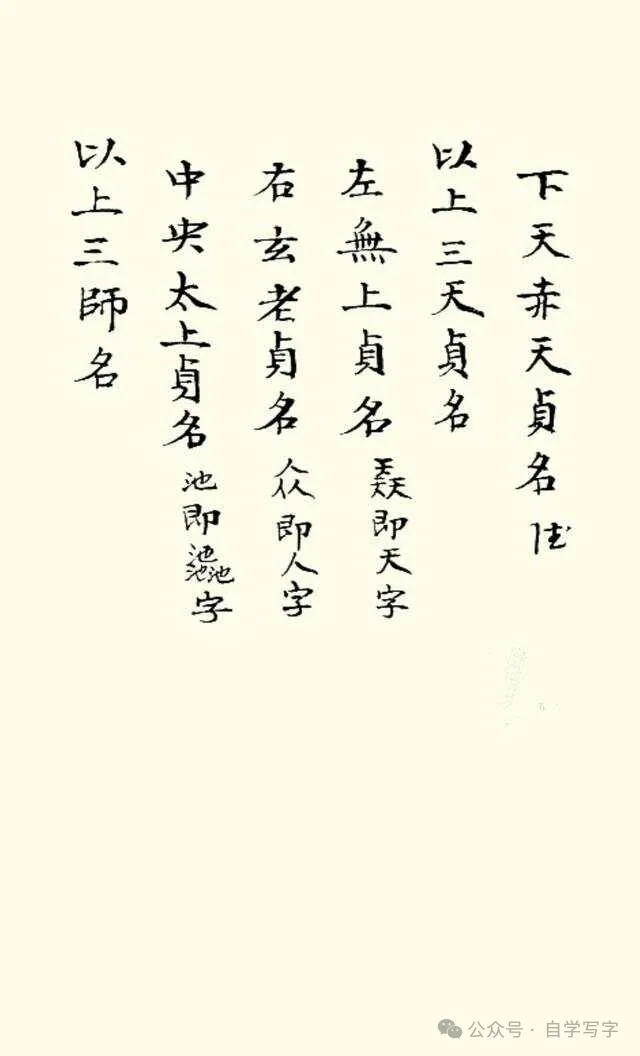 下天赤天貞名
以上三天貞名
左無上貞名 即天字
右玄老貞名 众即人字
中央太上貞名 池即字
以上三師名
公众号 · 自学写字